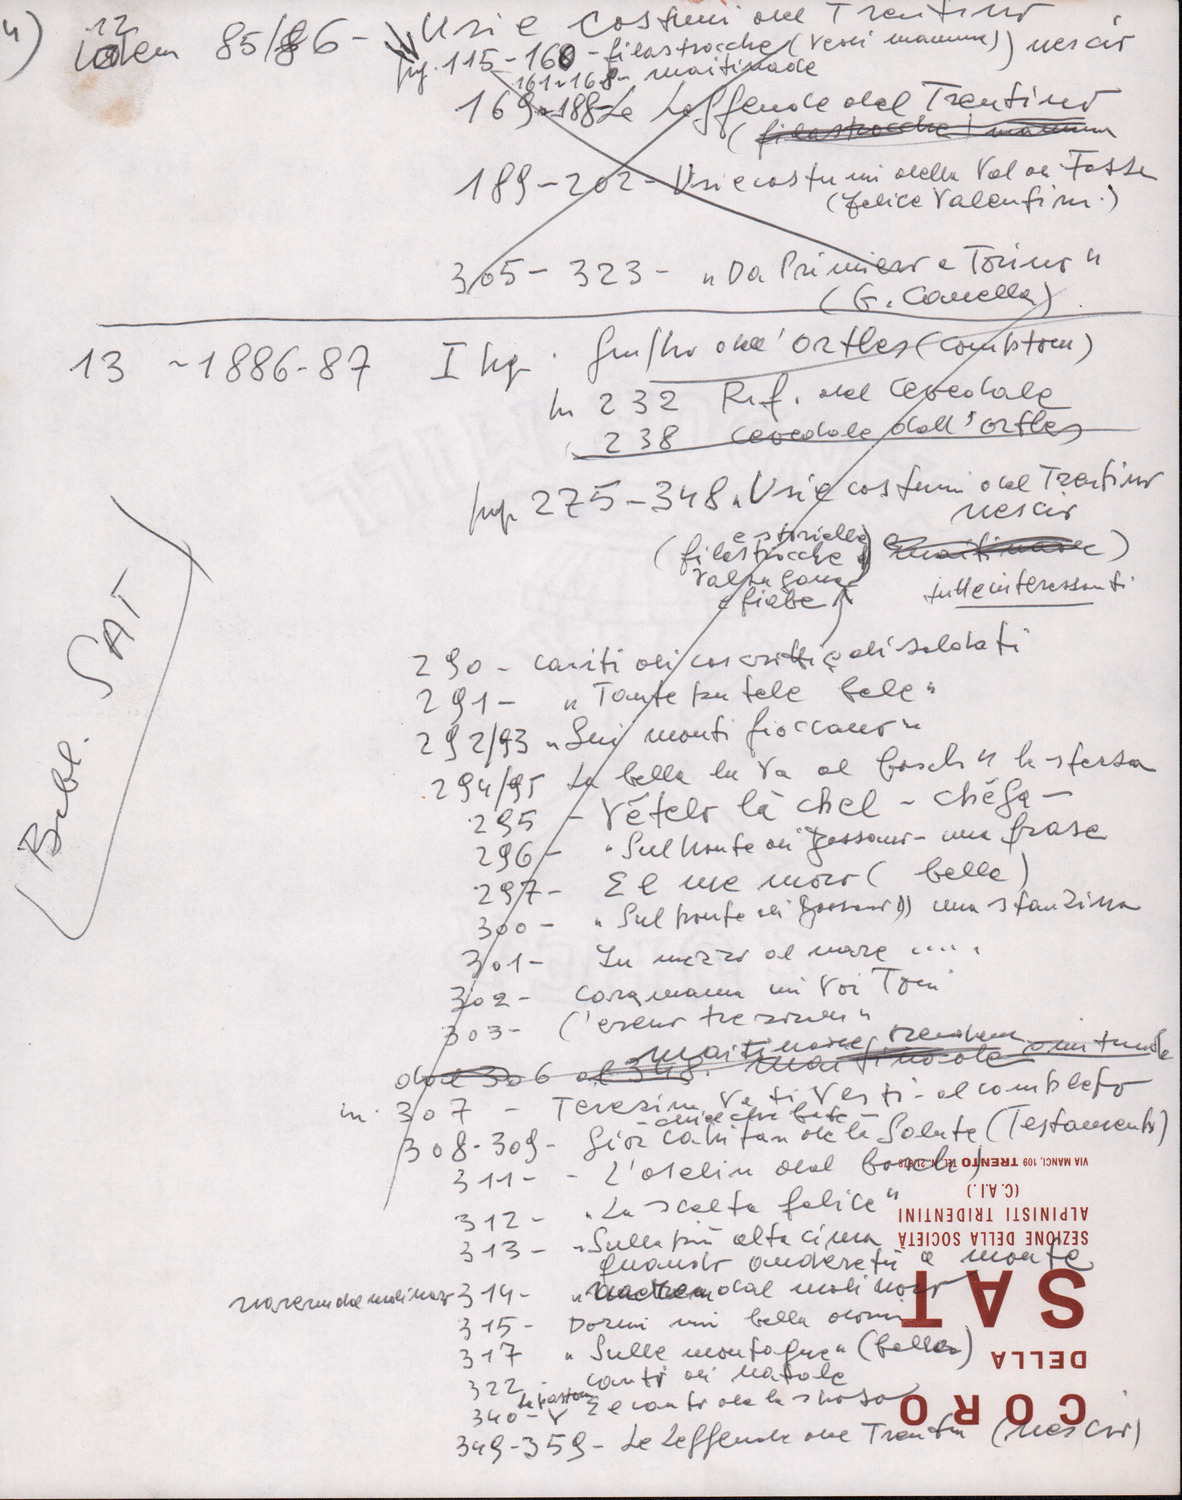 4) 12 idem 85/86 - Usi e costumi del Trentino
pg. 115-160 - filastrocche (versi mamma)) nescir
161-168 - maitinade
169-188 - Le Leggende del Trentino
(filastrocche mamma
189-202 - Usi e costumi della Val di Fassa
(Felice Valentini)
305 - 323 - "Da Primiero a Torino"
(G. Canella)
13 ~1886-87 I pg. dell'Ortles (
In 232 Rif. del Cevedale
238 Cevedale dall'Ortles
pg. 275-348 "Usi e costumi del Trentino
nescir
e storielle
(filastrocche maitinade)
Valsugana
e fiabe
tutte interessanti
290 - canti di coscritti e di soldati
291 - "Tante putele bele"
292/93 "Sui monti fioccano"
294/95 La bella la va al bosch" la stessa
295 - Vételo là chel - chéga -
296 - "Sul ponte di Bassano - una frase
297 - E l me moro (bella)
300 - "Sul ponte di Bassano)) una stanzina
301 - In mezzo al mare .....
302 - cara mamma mi voi Toni
303 - C'erano tre
maitinade
dal 306 al 348. maitinade
in. 307 - Teresina Vesti - al completo
308-309 - Gior Capitan de la Salute (Testamento)
311 - - L'oselin del bosch)
312 - "La scelta felice"
313 - "Sulla più alta cima
quando anderetu a monte
314 - " dal molinaro
315 - Dormi mi bella dormi
317 "Sulle montagne" (bella)
322 - canti di natale
340 - E canto de la sposa
349-359 - Le Leggende del Trentin (nescir)
(Bibl. SAT
CORO
DELLA
SAT
SEZIONE DELLA SOCIETÀ
ALPINISTI TRIDENTINI
(C.A.I.)
VIA MANCI, 109 TRENTO